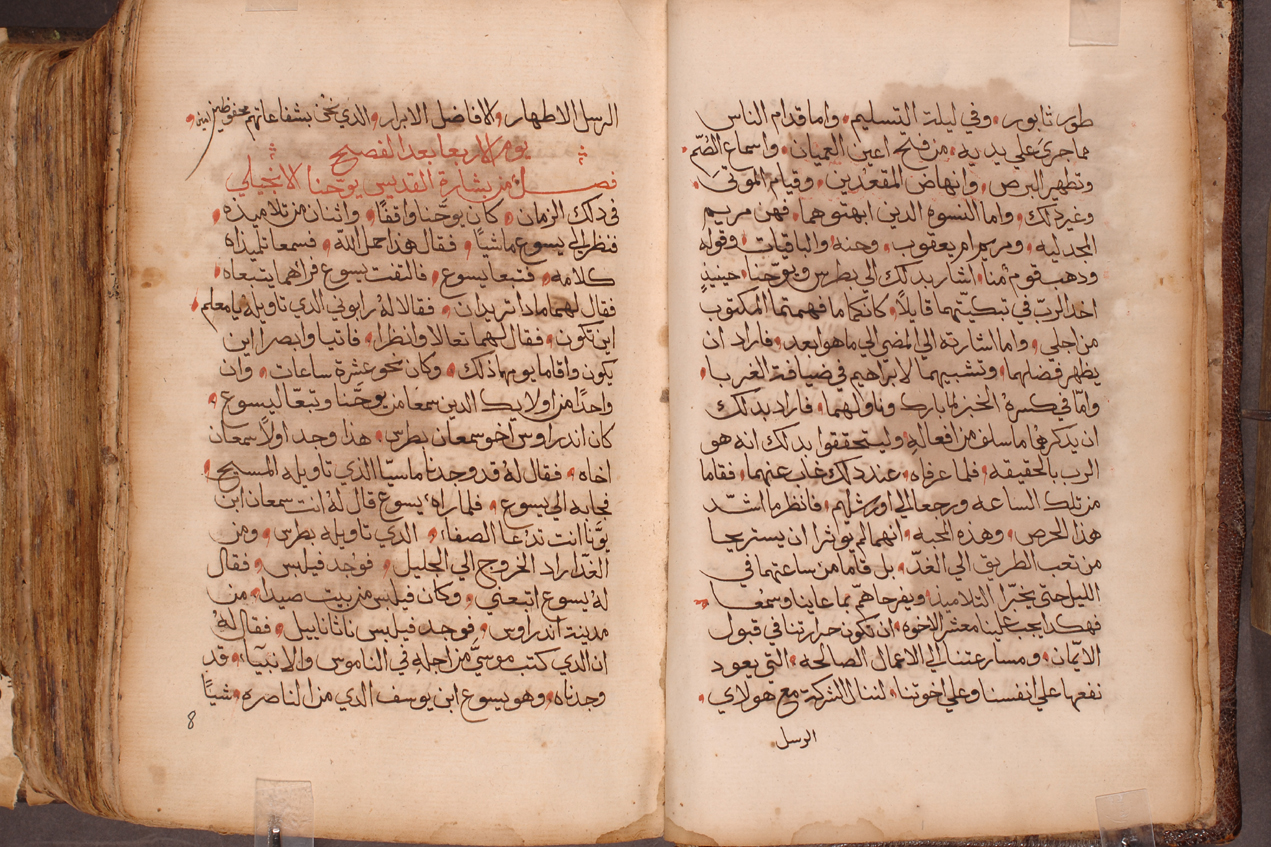 طور ثابور، وفي ليلة التسليم، واما قدام الناس
مما جرى على يديه، من فتح اعين العميان، واسماع الصم،
وتطهير البرص، وانهاض المقعدين، وقيام الموتى،
وغير ذلك، واما النسوة الذين ابهتوهما، فهن مريم
المجدلية، ومريم ام يعقوب، وحنه والباقيات، وقوله
ودهب قوم منا، اشار بذلك الى بطرس ويوحنا، حينيذٍ
اخد الرب في تبكيتهما قايلاً، كانكما ما فهمتما المكتوب
من اجلي، واما اشارته الى المضي الى ما هو ابعد، فاراد ان
يظهر فضلهما، وتشبههما لابراهيم في ضيافة الغربا،
وامّا في كسرة الخبز لما بارك وناولهما، فاراد بدلك
ان يدكرهما ما سلف من افعاله، وليتحققوا بدلك انه هو
الرب بالحقيقه، فلما عرفاه، عند دلك غاب عنهما، فقاما
من تلك الساعه ورجعا الي اورشليم، فانظر ما اشد
هذا الحرص، وهذه المحبه، انهما لم يوثرا ان يستريحا
من تعب الطريق الي الغد، بل قاما من ساعتهما في
الليل حتى يخبرا التلاميد، ويفرحاهم بما عاينا وسمعا
فهكدا يجب علينا معشر الاخوه، ان تكون حرارتنا في قبول
الايمان، ومسارعتنا الي الاعمال الصالحة، التي يعود
نفعها علي انفسنا وعلي اخوتنا، لننال الشركة مع هولاي،
الرسل
الرسل الاطهار، والافاضل الابرار، الدي نحن بشفاعاتهم محفوظين امين،
يوم الاربعا بعد الفصيح
فصل من بشارة القديس يوحنا الانجيلي
في دلك الزمان، كان يوحنا واقفًا، واثنان من تلاميذه،
فنظر الي يسوع ماشيًا، فقال هذا حمل الله، فسمعا تليداه
كلامه، فتبعا يسوع، فالتفت يسوع فراهما يتبعاه،
فقال لهما مادا تريدان، فقالا له رابوني الدي تاويله يا معلم،
اين تكون، فقال لهما تعالا وانظرا، فاتيا وابصرا اين
يكون واقاما يومهما دلك، وكان نحو عشرة ساعات، وان
واحدًا من اولايك الدين سمعا من يوحنا وتبعا ليسوع،
كان اندراوس اخو سمعان بطرس، هذا وجد اولاً سمعان
اخاه، فقال له قد وجدنا ماسيا الذي تاويله المسيح،
فجا به الي يسوع، فلما راه يسوع قال له انت سمعان ابن
يونا انت تدعا الصفا، الدي تاويله بطرس، ومن
الغد اراد الخروج الي الجليل، فوجد فيلبس، فقال
له يسوع اتبعني، وكان فيلبس من بيت صيدا، من
مدينت اندراوس، فوجد فيلبس ناثانايل، فقال له
ان الدي كتب موسى من اجله في الناموس والانبيا، قد
وجدناه، وهو يسوع ابن يوسف الدي من الناصره، شيًا
8